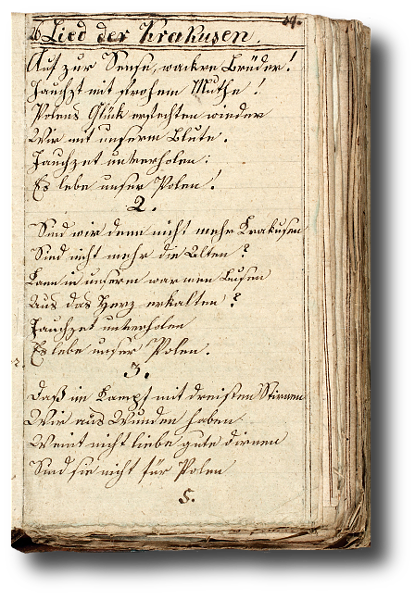 84.
26 Lied der Krakusen.
Auf zur Sense, wackre Brüder!
Jauchzt mit frohem Muthe!
Polens Glük erfechten wieder
Wir mit unserm Blute.
Jauchzet unverholen:
Es lebe unser Polen!
2.
Sind wir denn nicht mehr Krakusen
Sind nicht mehr die Alten?
Kann in unserm warmen Busen
Uns das Herz erkalten?
Jauchzet unverholen
Es lebe unser Polen.
3.
Daß im Kampf mit dreisten Stirnen
Wir auf Wunden haben
Weint nicht liebe gute Dirnen
Sind sie nicht für Polen
5.